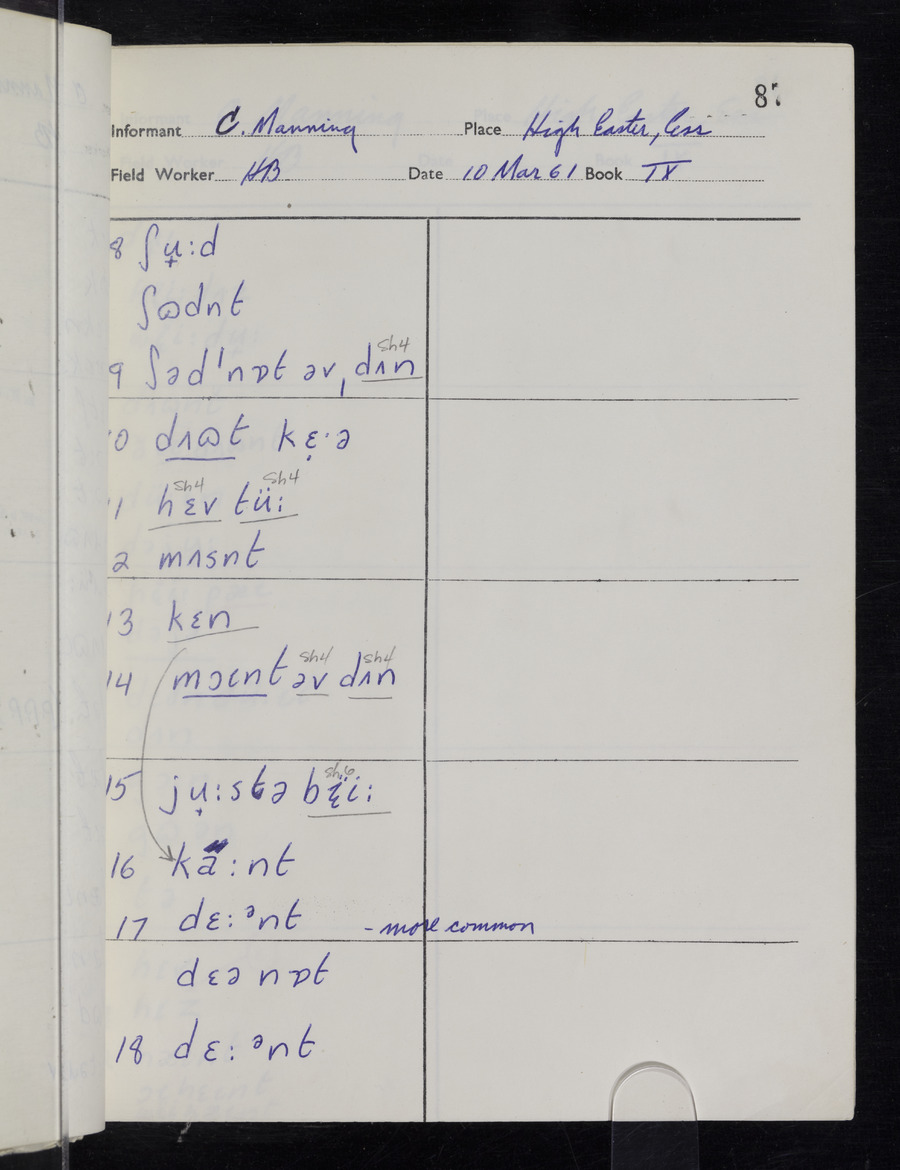 87
Informant C. Manning Place High Easter, Ess
Field Worker HB Date 10 Mar 61 Book IX
8 ʃu̟:d
ʃɷdnt
sh4
9 ʃəd ˈnɒt əv ˌdʌn
10 dʌɷt kɛ̣·ə
sh4 sh4
11 hɛv tü:
2 mʌsnt
13 kɛn
sh4 sh4
14 mɔɩnt əv dʌn
sh6
15 ju̟:stə bɛ̣̈i:
16 kä:nt
17 dɛ:ᵊnt - more common
dɛə nɒt
18 dɛ:ᵊnt